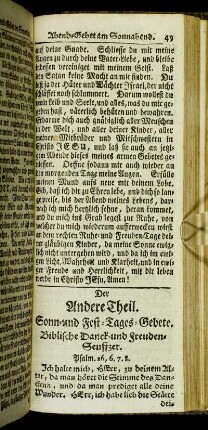 Abend-Gebet am Sonnabend. 49
auf deine Gnade. Schliesse du mit meine
Augen zu durch deine Vater-Liebe, und bleibe
dessen vereiniget mit meinem Geist. Laß
des Satan keine Macht an mir finden. Du
bist ja der Hüter und Wächter Israel, der nicht
schläffet noch schlummert. Darum wollest du
mein Leib und Seele, und alles, was du mir ge-
geben hast, väterlich behüten und bewahren.
Erbarme dich auch gnädiglich aller Menschen
in der Welt, und aller deiner Kinder, aller
meiner Mitbrüder und Mitschwestern in
Christo JESU, und laß sie auch an jetzi-
gem Abende dieses meines armen Gebetes ge-
niessen. Oeffne sodann mir auch wieder an
dem morgenden Tage meine Augen. Erfülle
meinen Mund aufs neue mit deinem Lobe.
GOtt, daß ich dir zu Ehren lebe, und dich so lan-
ge preise, biß der Abend meines Lebens, dar-
nach ich mich hertzlich sehne, heran kommet,
und du mich ins Grab legest zur Ruhe, von
welcher du mich wiederum auferwecken wirst
zu dem rechten Ruhe- und Freuden-Tage dei-
ner gläubigen Kinder, da meine Sonne ewig-
lich nicht untergehen wird, und da ich im ewi-
gen Licht, Wahrheit und Klarheit, und in ewi-
ger Freude und Herrlichkeit, mit dir leben
werde in Christo JEsu, Amen!
Der
Andere Theil.
Sonn- und Fest-Tages-Gebete.
Biblische Danck- und Freuden-
Seufzer.
Psalm. 26, 6. 7. 8.
Ich halte mich, HErr, zu deinem Al-
tar, da man höret die Stimme des Dan-
ckens, und da man prediget alle deine
Wunder. HErr, ich habe lieb die Stätte
dei-